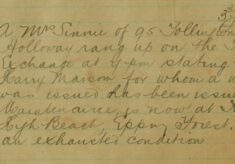 3
A Mrs Sinnie of 95 Tollington
Holloway rang up on the
Exchange at 4 pm stating
Harry Mason for whom a w
was issued has been issue
Maintenance is now at
Beach, Epping Forest.
an exhausted condition